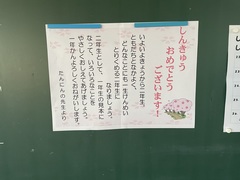 しんきゅう
おめでとう
ございます!
いよいよきょうから二年生。
ともだちとなかよく、
どんなことにも一生けんめい
とりくめる二年生に
なりましょう。
二年生として、一年生の見本に
なって、いろいろなことを
やさしくおしえてあげましょう。
一年かんよろしくおねがいします。
たんにんの先生より